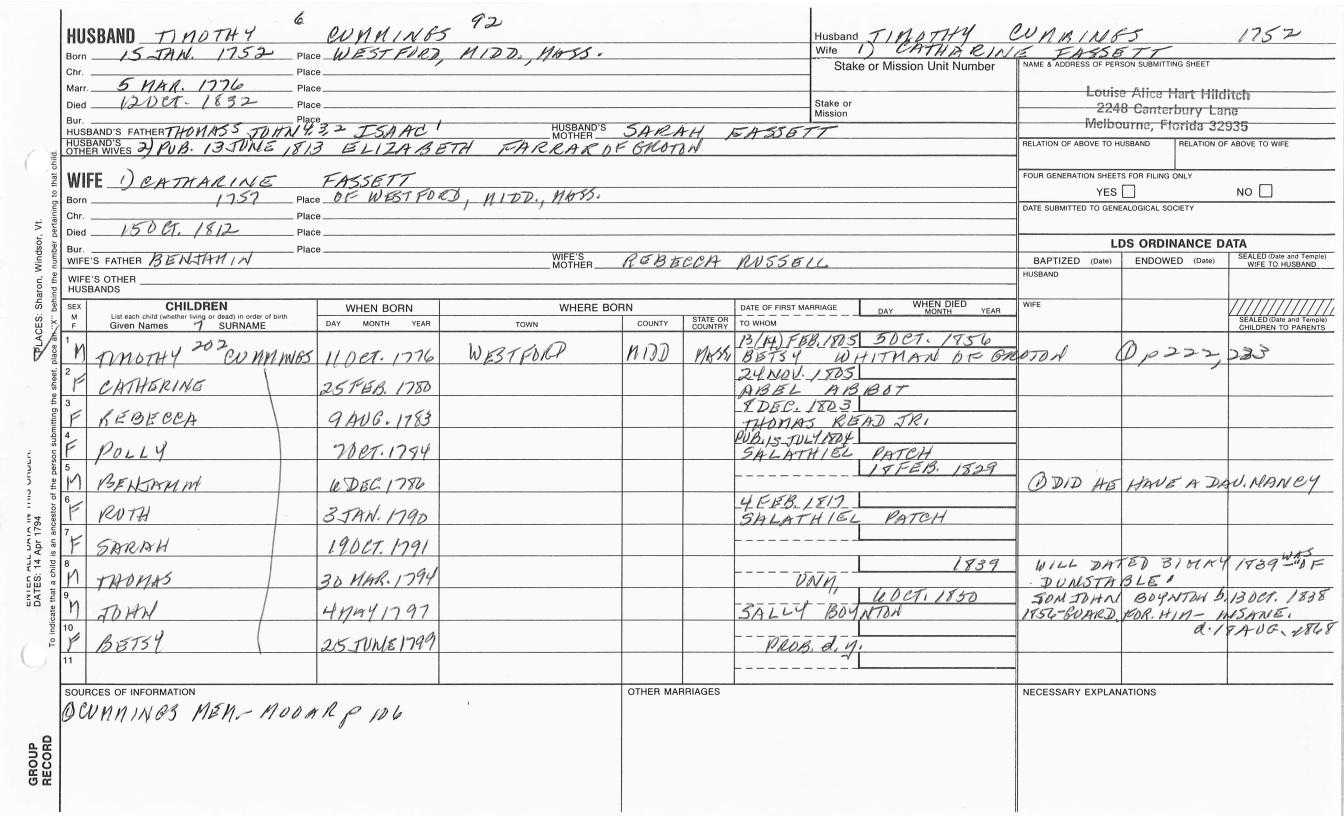 HUSBAND TIMOTHY 6 CUMMINGS 92
Born 15 JAN. 1752 Place WESTFORD, MIDD., MASS.
Chr. Place
Marr. 5 MAR. 1776 Place
Died 12 OCT. 1832 Place
Bur. Place
HUSBAND'S FATHER THOMAS5 JOHN4,3,2 ISAAC1 HUSBAND'S MOTHER SARAH FASSETT
HUSBAND'S OTHER WIVES 2) PUB. 13 JUNE 1813 ELIZABETH FARRAR OF GROTON
WIFE 1) CATHARINE FASSETT
Born 1757 Place OF WESTFORD, MIDD., MASS.
Chr. Place
Died 15 OCT. 1812 Place
Bur. Place
WIFE'S FATHER BENJAMIN WIFE'S MOTHER REBECCA RUSSELL
WIFE'S OTHER HUSBANDS
Husband TIMOTHY CUMMINGS 1752
Wife 1) CATHARINE FASSETT
Stake or Mission Unit Number
Stake or Mission
NAME & ADDRESS OF PERSON SUBMITTING SHEET
Louise Alice Hart Hilditch
2248 Canterbury Lane
Melbourne, Florida 32935
RELATION OF ABOVE TO HUSBAND RELATION OF ABOVE TO WIFE
FOUR GENERATION SHEETS FOR FILING ONLY
YES NO
DATE SUBMITTED TO GENEALOGICAL SOCIETY
LDS ORDINANCE DATA
BAPTIZED (Date) ENDOWED (Date) SEALED (Date and Temple) WIFE TO HUSBAND
HUSBAND
WIFE
SEALED (Date and Temple) CHILDREN TO PARENTS
SEX M F CHILDREN WHEN BORN WHERE BORN DATE OF FIRST MARRIAGE WHEN DIED
List each child (whether living or dead) in order of birth
Given Names 7 SURNAME DAY MONTH YEAR TOWN COUNTY STATE OR COUNTRY TO WHOM DAY MONTH YEAR
1 M TIMOTHY 202 CUMMINGS 11 OCT. 1776 WESTFORD MIDD MASS 13/(14) FEB. 1805 5 OCT. 1856
BETSY WHITMAN OF GROTON ① p 222, 233
2 F CATHERINE 25 FEB. 1780 24 NOV. 1805
ABEL ABBOT
3 F REBECCA 9 AUG. 1783 8 DEC. 1803
THOMAS READ JR.
4 F POLLY 7 OCT. 1784 PUB. 15 JULY 1804
SALATHIEL PATCH
5 M BENJAMIN 6 DEC. 1786 18 FEB. 1829
① DID HE HAVE A DAU. NANCY
6 F RUTH 3 JAN. 1790 4 FEB. 1817
SALATHIEL PATCH
7 F SARAH 19 OCT. 1791
8 M THOMAS 30 MAR. 1794 UNM. 1839
WILL DATED 31 MAY 1839 WAS "OF
DUNSTABLE"
9 M JOHN 4 MAY 1797 6 OCT. 1850
SALLY BOYNTON
SON JOHN BOYNTON b. 13 OCT. 1838
1856-GUARD. FOR HIM- INSANE.
d. 18 AUG. 1868
10 F BETSY 25 JUNE 1799 PROB. d. y.
11
SOURCES OF INFORMATION OTHER MARRIAGES NECESSARY EXPLANATIONS
① CUMMINGS MEM.- MOOAR p 106
PLACES: Sharon, Windsor, Vt.
ENTER ALL DATA IN THIS ORDER:
DATES: 14 Apr 1794
To indicate that a child is an ancestor of the person submitting the sheet, place an "X" behind the number pertaining to that child.
GROUP RECORD